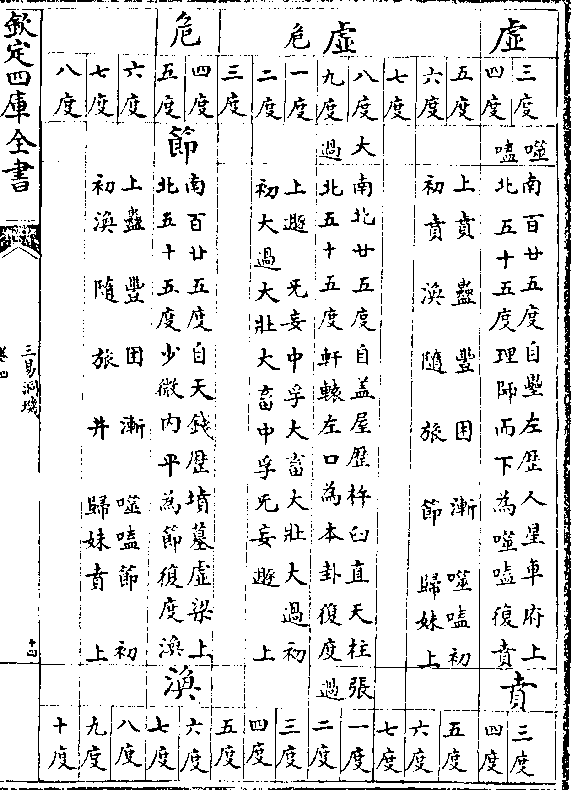 虛
三度
噬
南百廿五度自壘左歷人星車府上
三度
四度
嗑
北五十五度理師而下為噬嗑復賁
賁
四度
五度
上賁蠱豐困漸噬嗑初
五度
六度
初賁渙隨旅節歸妹上
六度
七度
七度
虛
八度
大
南北廿五度自蓋屋歷杵臼直天柱
張
一度
九度
過
北五十五度軒轅左口為本卦復度
過
二度
危
一度
上遯无妄中孚大畜大壯大過初
三度
二度
初大過大壯大畜中孚无妄遯上
四度
三度
五度
危
四度
節
南百廿五度自天錢歷墳墓虛梁上
六度
五度
北五十五度少微內平為節復度渙
渙
七度
六度
上蠱豐困漸噬嗑節初
八度
七度
初渙隨旅井歸妹賁上
九度
八度
十度
欽定四庫全書
三易洞璣
卷四
十四